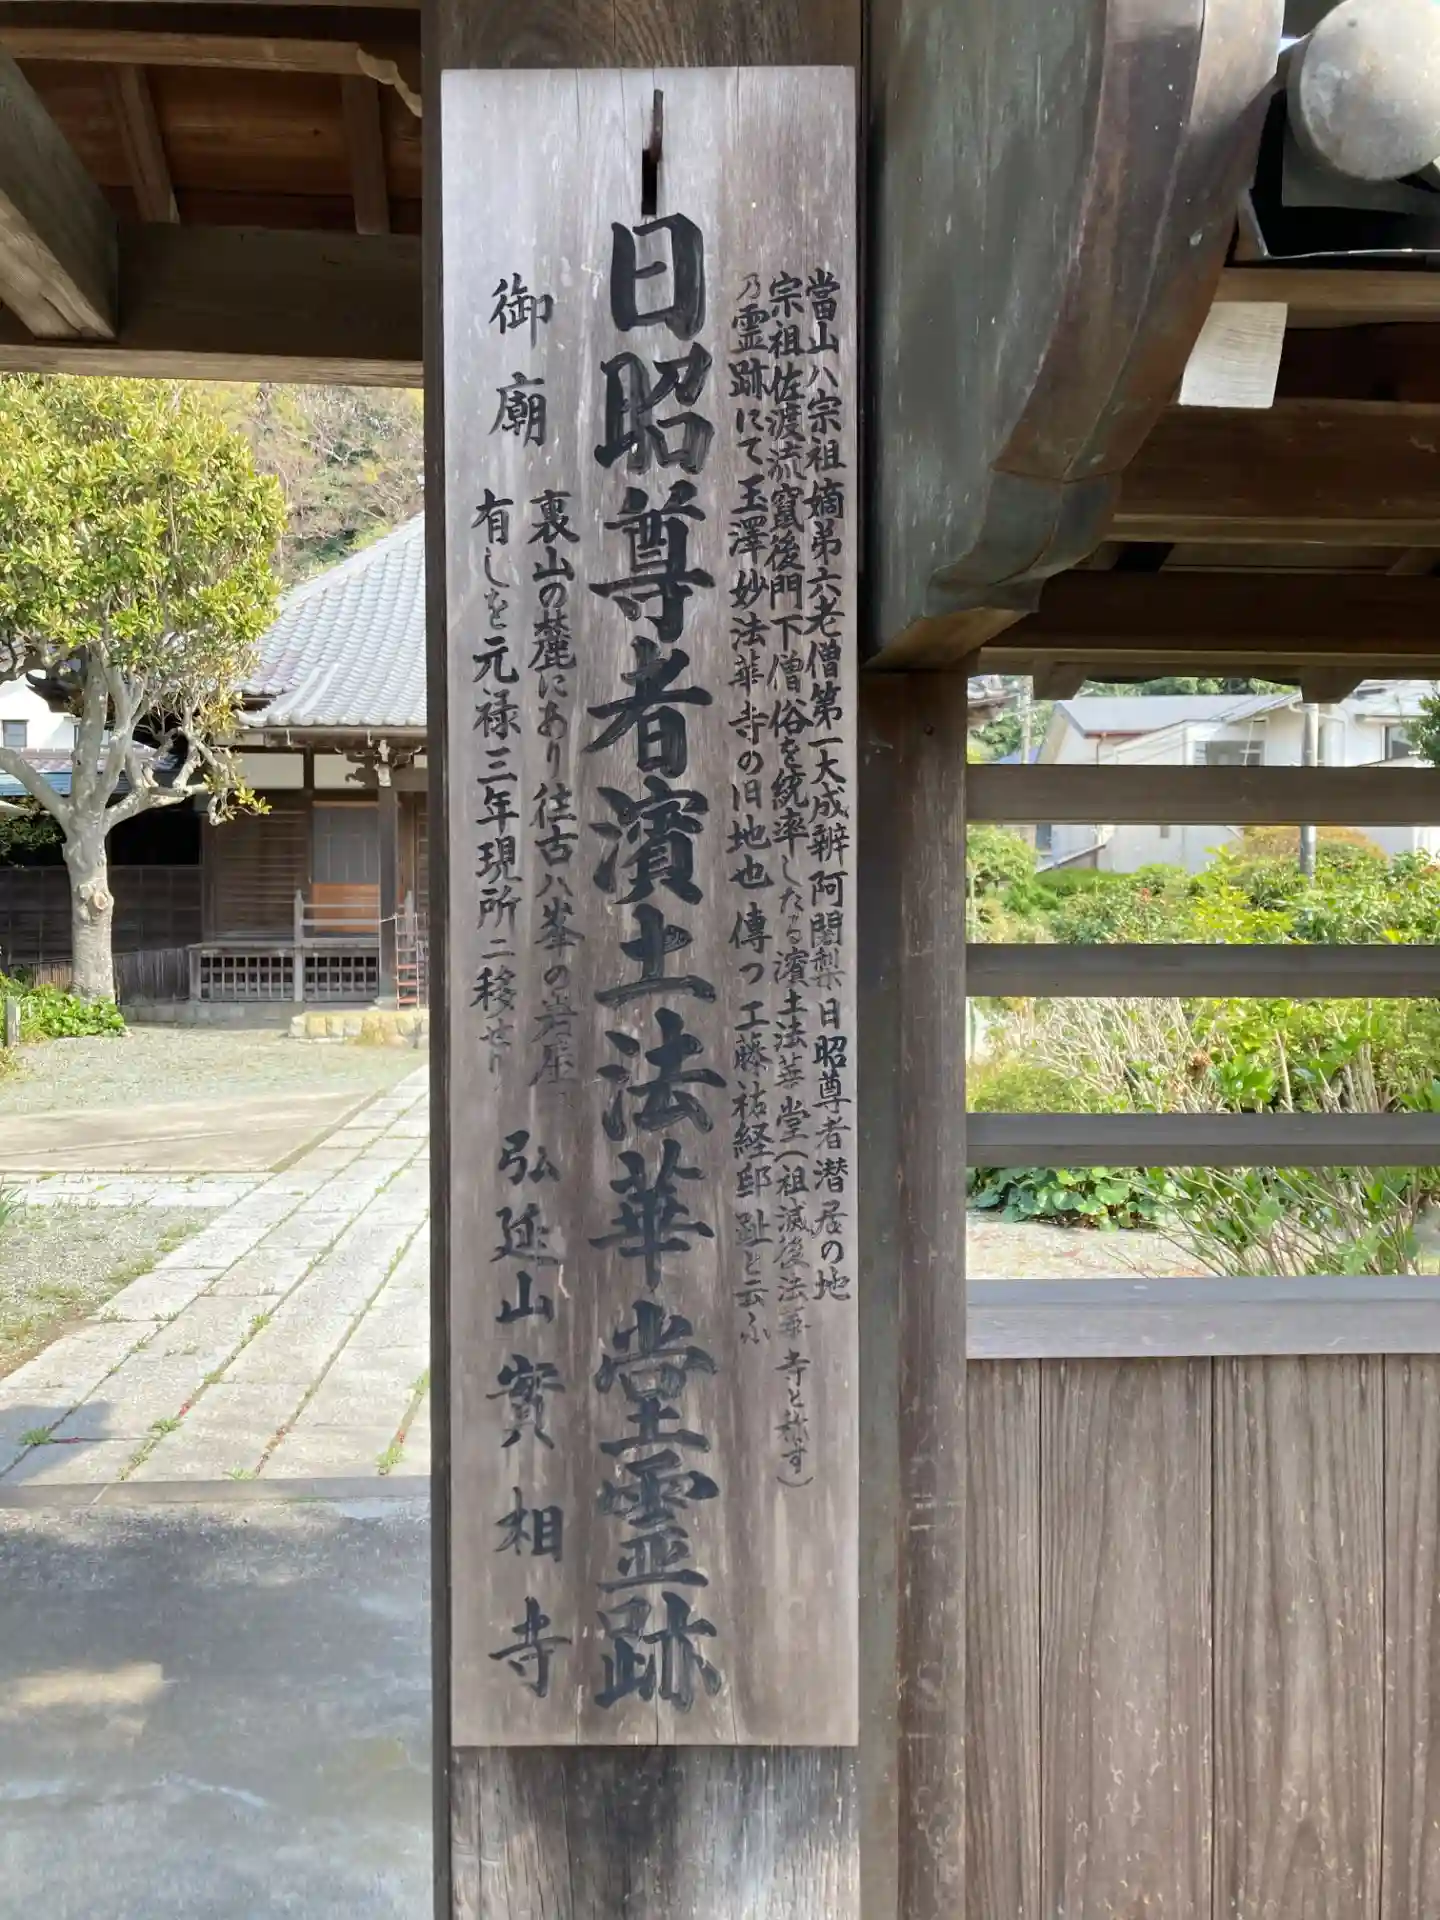 當山ハ宗祖嫡弟六老僧第一大成辨阿闍梨日昭尊者潜居の地
宗祖佐渡流竄後門下僧俗を統率したる濱土法華堂(祖滅後法華寺と称す)
乃霊跡にて玉澤妙法華寺の旧地也 傳つ工藤祐経邸趾と云ふ
日昭尊者濱土法華堂霊跡
御廟
裏山の麓にあり往古ハ峯の岩座
有しを元禄三年現所ニ移せり
弘延山實相寺